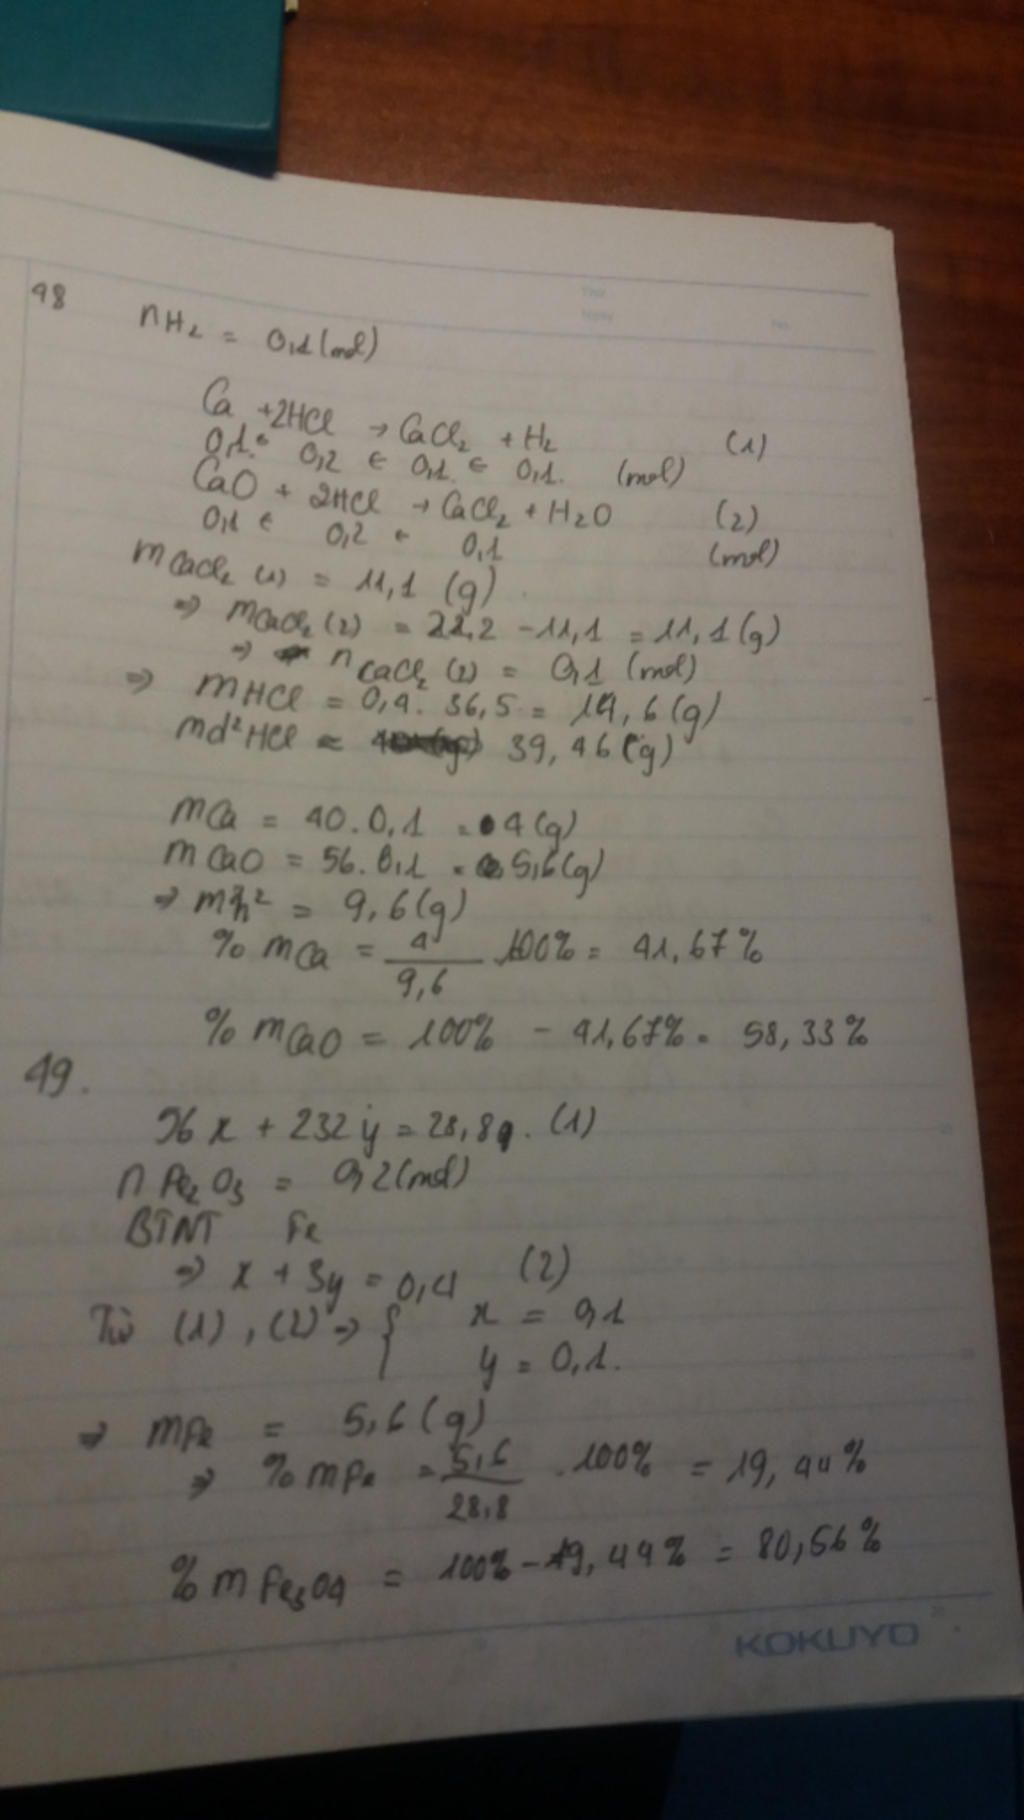 48
nH2 = 0,1 (mol)
Ca + 2HCl → CaCl2 + H2 (1)
0,1 ← 0,2 ← 0,1 ← 0,1 (mol)
CaO + 2HCl → CaCl2 + H2O (2)
0,1 ← 0,2 ← 0,1 (mol)
mCaCl2 (1) = 11,1 (g)
⇒ mCaCl2 (2) = 22,2 - 11,1 = 11,1 (g)
⇒ nCaCl2 (2) = 0,1 (mol)
⇒ mHCl = 0,4 . 36,5 = 14,6 (g)
md²HCl = 39,46 (g)
mCa = 40 . 0,1 = 4 (g)
mCaO = 56 . 0,1 = 5,6 (g)
⇒ mh² = 9,6 (g)
% mCa = 4/9,6 . 100% = 41,67%
% mCaO = 100% - 41,67% = 58,33%
49.
56x + 232y = 28,8 . (1)
nFe2O3 = 0,2 (mol)
BTNT Fe
⇒ x + 3y = 0,4 (2)
Từ (1), (2) ⇒ { x = 0,1
y = 0,1.
⇒ mFe = 5,6 (g)
⇒ % mFe = 5,6/28,8 . 100% = 19,44%
% mFe3O4 = 100% - 19,44% = 80,56%
KOKUYO